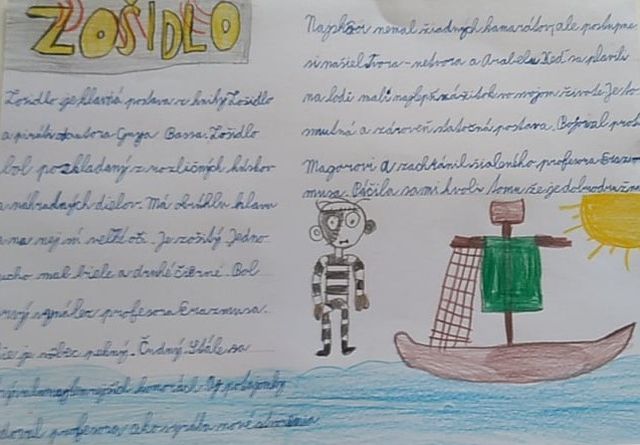 ZOŠIDLO
Zošidlo je hlavná postava z knihy Zošidlo
a piráti autora Guya Bassa. Zošidlo
bol poskladaný z rozličných kúskov
a náhradných dielov. Má okrúhlu hlavu
a na nej má veľké oči. Je zošitý. Jedno
ucho mal biele a druhé čierne. Bol
prvý vynález profesora Erazmusa.
nie je vôbec pekný. Čudný. Stále sa
v komorách. Od
profesora ako vyrába nové stvorenia
Najskôr nemal žiadnych kamarátov, ale postupne
si našiel Tvora-netvora a Arabelu. Keď sa plavili
na lodi mali najlepší zážitok vo svojom živote. Je to
smutná a zároveň statočná postava. Bojoval proti
Magorovi a zachránil šialeného profesora Erazmo
musa. Páčila sa mi kvôli tomu, že je dobrodružná